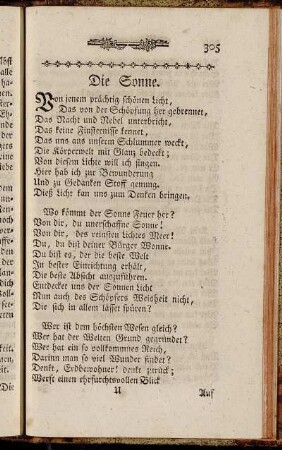 305
Die Sonne.
Von jenem prächtig schönen Licht,
Das von der Schöpfung her gebrennet,
Das Nacht und Nebel unterbricht,
Das keine Finsternisse kennet,
Das uns aus unserm Schlummer weckt,
Die Körperwelt mit Glanz bedeckt;
Von diesem Lichte will ich singen.
Hier hab ich zur Bewunderung
Und zu Gedanken Stoff genung.
Dieß Licht kan uns zum Denken bringen.
Wo kömmt der Sonne Feuer her?
Von dir, du unerschaffne Sonne!
Von dir, des reinsten Lichtes Meer!
Du, du bist deiner Bürger Wonne.
Du bist es, der die beste Welt
In bester Einrichtung erhält,
Die beste Absicht auszuführen.
Entdecket uns der Sonnen Licht
Nun auch des Schöpfers Weisheit nicht,
Die sich in allem lässet spüren?
Wer ist dem höchsten Wesen gleich?
Wer hat der Welten Grund gegründet?
Wer hat ein so vollkommnes Reich,
Darinn man so viel Wunder findet?
Denkt, Erdbewohner! denkt zurück;
Werft einen ehrfurchtsvollen Blick
U
Auf